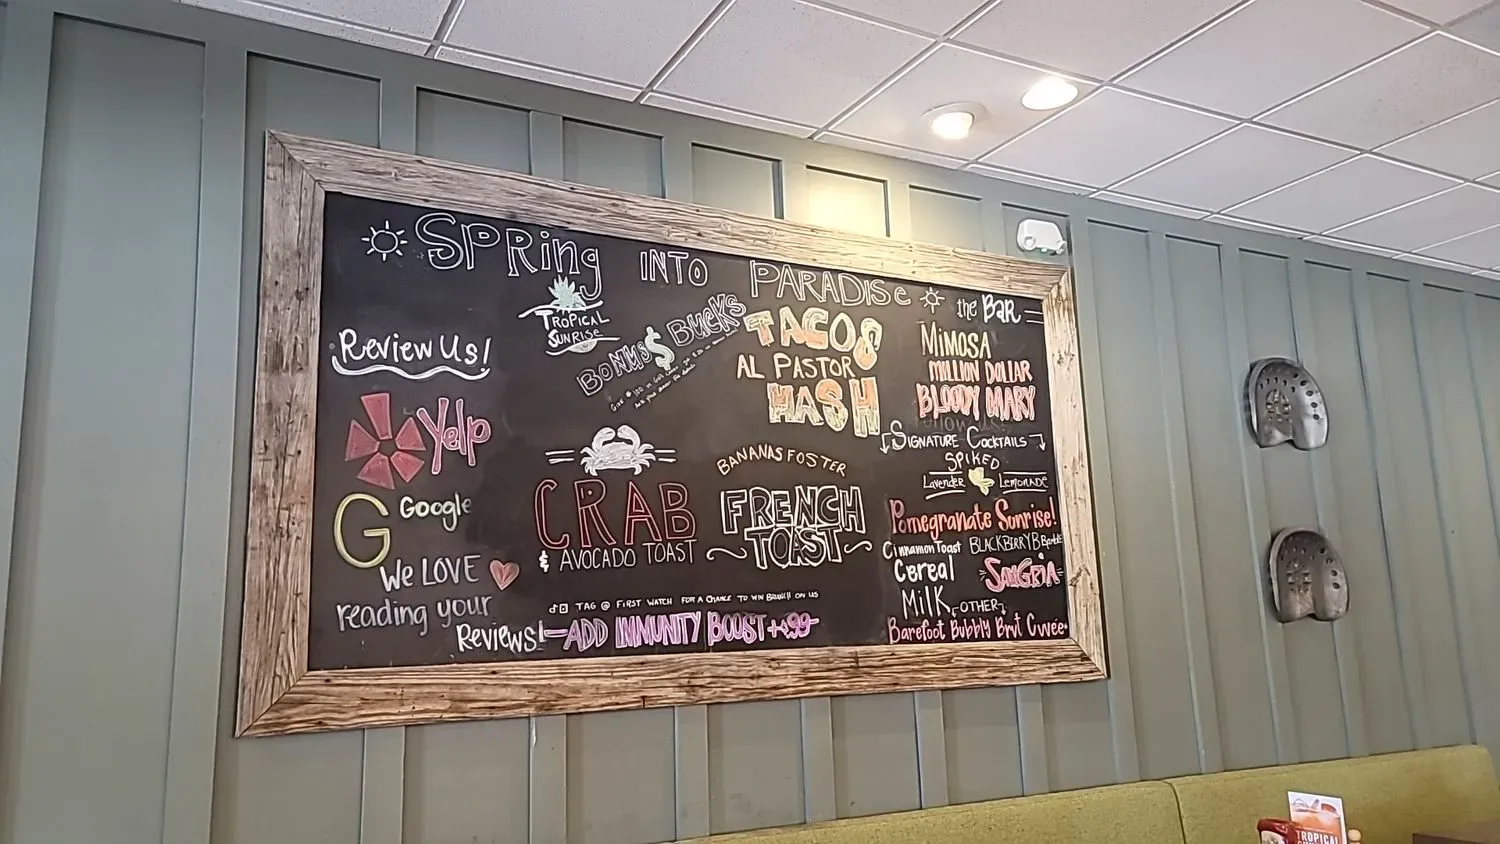 SPRing INTO PARADISE
Review Us!
Yelp
G Google
We LOVE
reading your
Reviews!
TROPICAL
SUNRISE
BONUS $ BUCKS
TACOS
AL PASTOR
HASH
CRAB
& AVOCADO TOAST
BANANAS FOSTER
FRENCH
TOAST
TAG @ FIRST WATCH FOR A CHANCE TO WIN BRUNCH ON US
ADD IMMUNITY BOOST +4.99
the BAR
MIMOSA
MILLION DOLLAR
BLOODY MARY
SIGNATURE COCKTAILS
SPIKED
Lavender LEMONADE
Pomegranate Sunrise!
Cinnamon Toast
Cereal
MilK
BLACKBERRY B
SANGRIA
OTHER
Barefoot Bubbly Brut Cuvée
TROPICAL